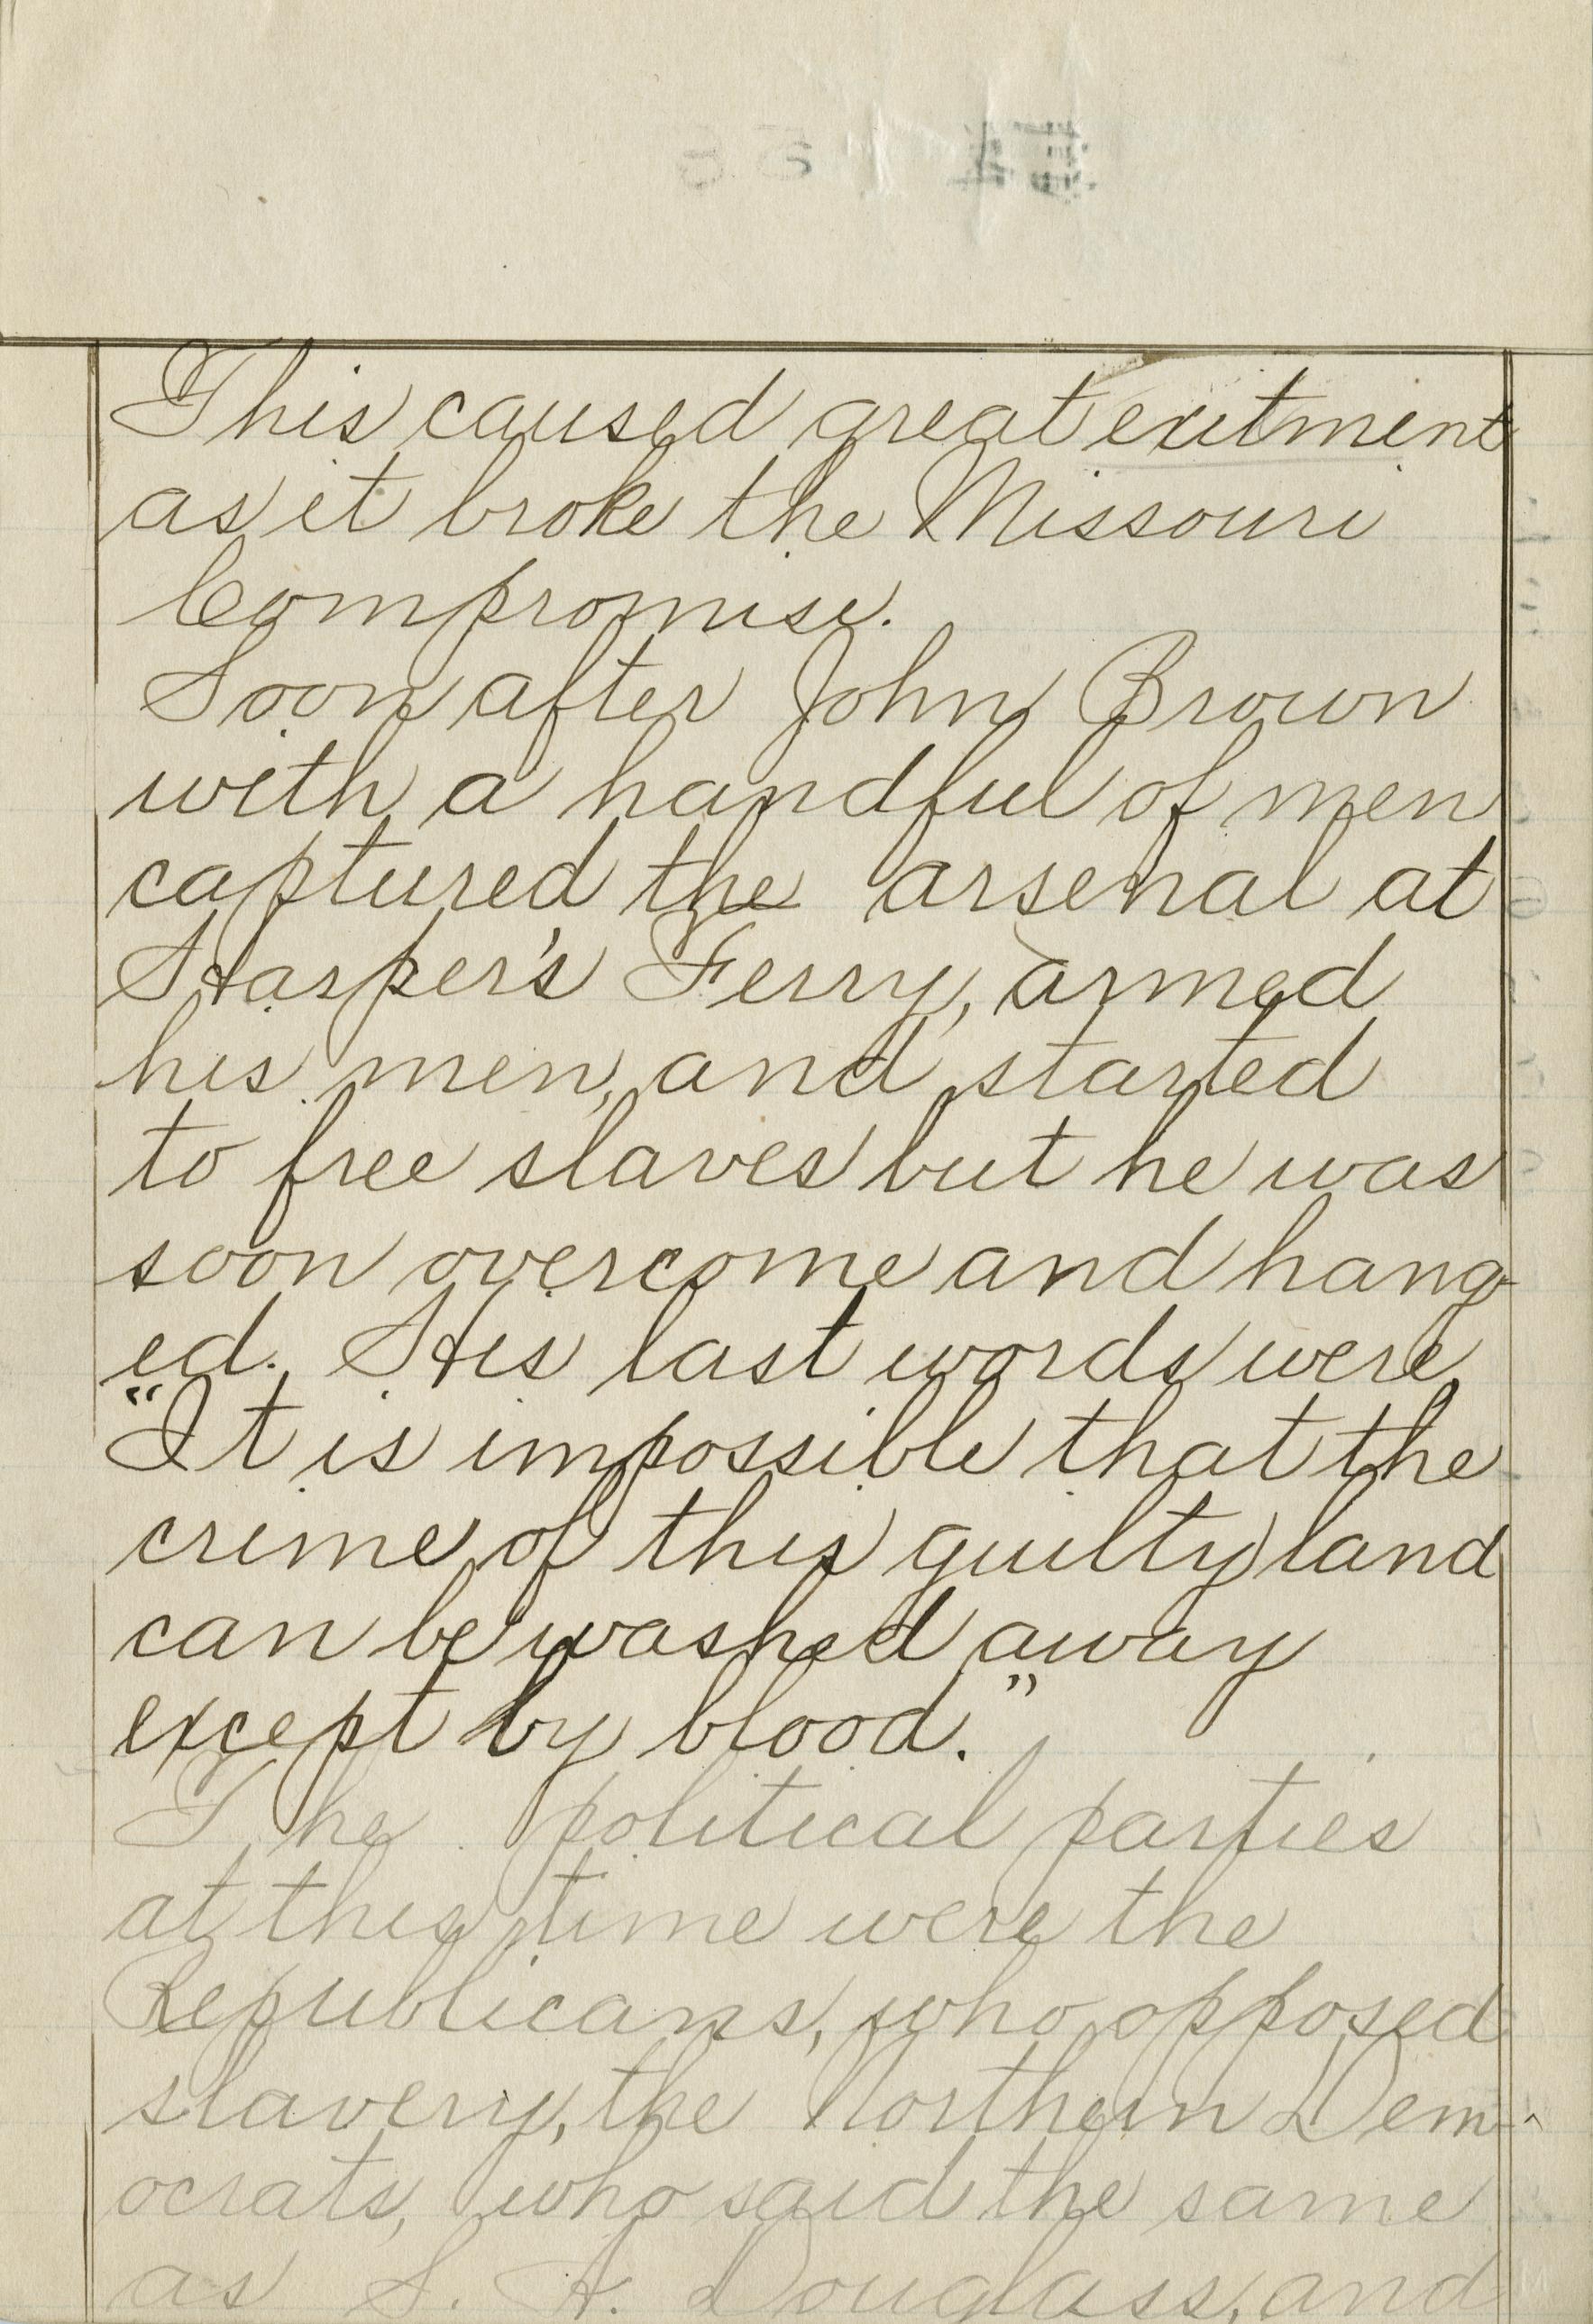 This caused great exitment
as it broke the Missouri
Compromise.
Soon after John Brown
with a handful of men
captured the arsenal at
Harper's Ferry, armed
his men, and started
to free slaves but he was
soon overcome and hang-
ed. His last words were,
"It is impossible that the
crime of this guilty land
can be washed away
except by blood."
The political parties
at this time were the
Republicans, who opposed
slavery, the Northern Dem-
ocrats, who said the same
as S. A. Douglass, and